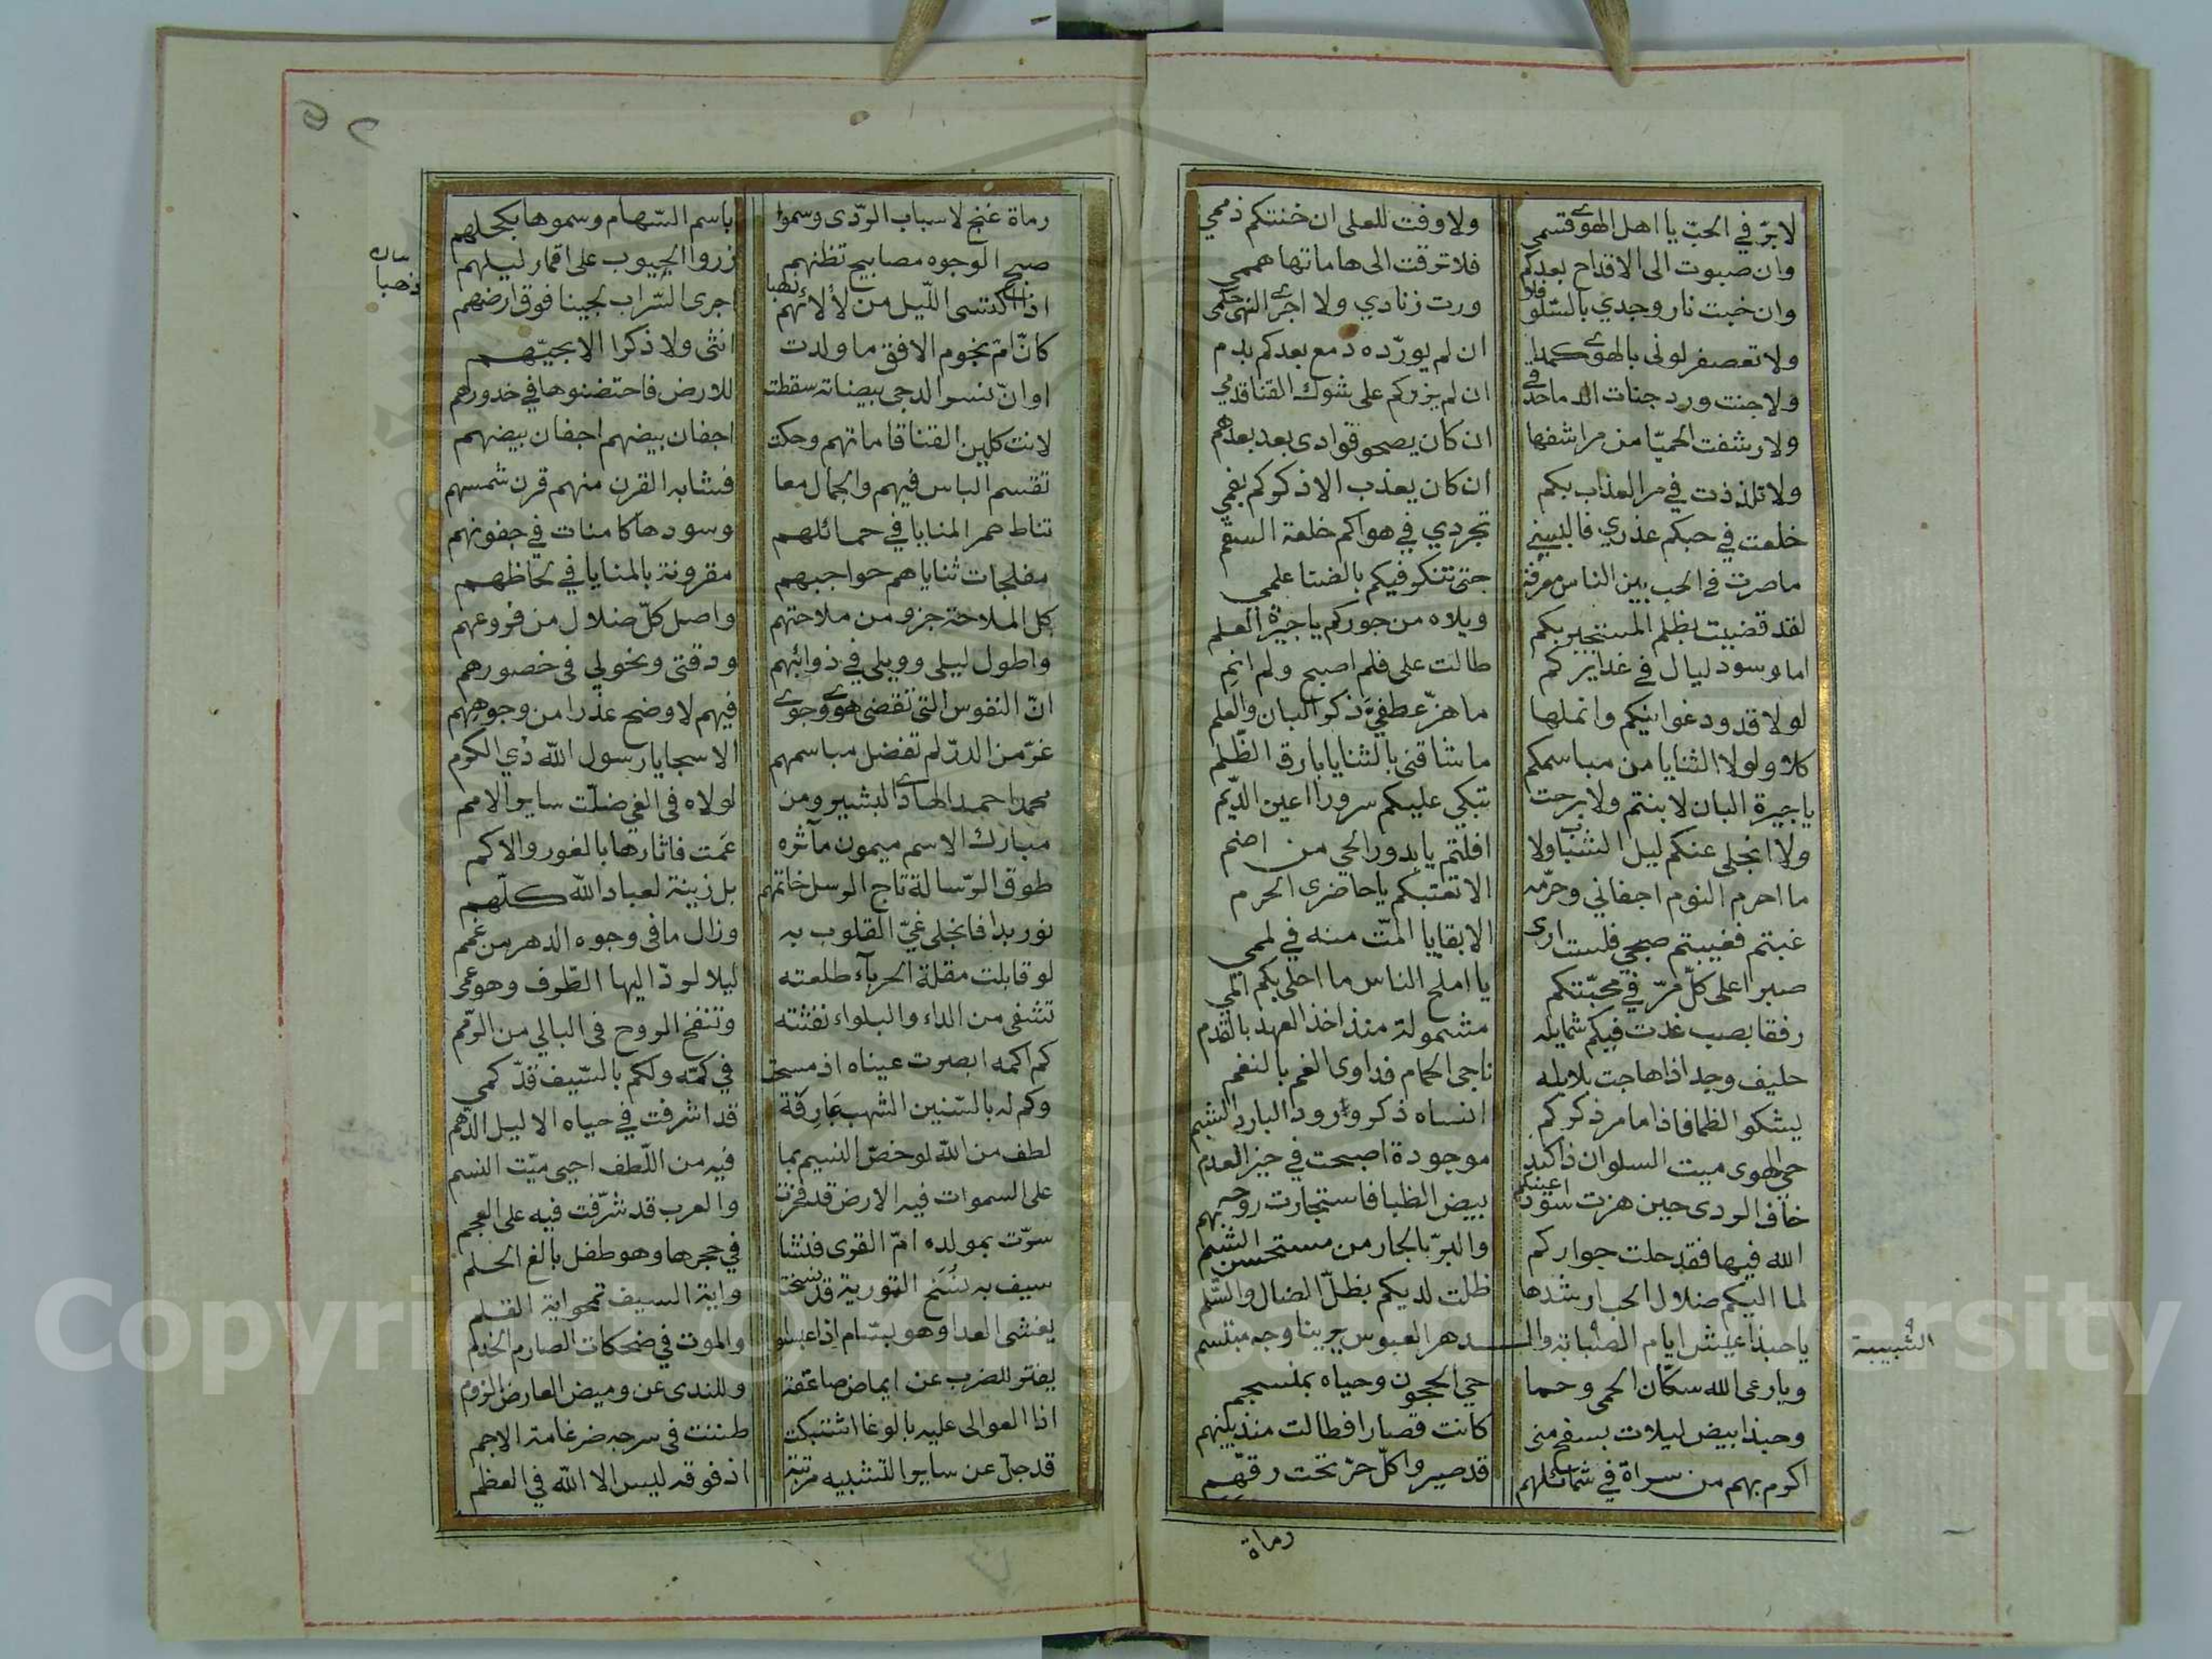 لا برّ في الحبّ يا اهل الهوى قسمي ولا وفت للعلى ان خنتكم ذممي
وان صبوت الى الاقداح بعدكم فلا ترقت الى هاماتها هممي
وان خبت نار وجدي بالسّلو فلا ورت زنادي ولا اجرى النهى حكمي
ولا تعصفر لوني بالهوى كمدا ان لم يورّده دمع بعدكم بدم
ولا جنت ورد جنات الدما حدقي ان لم يزركم على شوك القنا قدمي
ولا رشفت الحميّا من مراشفها ان كان يصحو فؤادى بعد بعدهم
ولا تلذذت في مر العذاب بكم ان كان يعذب الا ذكركم بفمي
خلعت في حبكم عذري فالبسني تجردي في هواكم خلعة السقم
ما صرت في الحب بين الناس معرفة حتى تنكر فيكم بالضنا علمي
لقد قضيت بظلم المستجير بكم ويلاه من جوركم يا جيرة العلم
اما وسود ليال في غدايركم طالت على فلم اصبح ولم انم
لولا قدود غوانيكم وانملها ما هزّ عطفيّ ذكر البان والعلم
كلا ولولا الثنايا من مباسمكم ما شاقنى بالثنايا بارق الظّلم
يا جيرة البان لا بنتم ولا برحت تبكي عليكم سرورا اعين الدّيم
ولا انجلى عنكم ليل الشباب ولا افلتم يا بدور الحي من اضم
ما احرم النوم اجفاني وحرّمه الا تعتبكم يا حاضرى الحرم
غبتم فغيبتم صبحي فلست ارى الا بقايا المّت منه في لممي
صبرا على كلّ مرّ في محبّتكم يا املح الناس ما احلى بكم المي
رفقا بصب غدت فيكم شمايله مشمولة منذ اخذ العهد بالقدم
حليف وجد اذا هاجت بلابله ناجى الحمام فداوى الغم بالنغم
يشكو الظما فاذا ما مر ذكركم انساه ذكر ورود البارد الشبم
حي الهوى ميت السلوان ذا كبد موجودة اصبحت في حيز العدم
خاف الردى حين هزت سود اعينكم بيض الظبا فاستجارت روحه بهم
الله فيها فقد حلت جواركم والبرّ بالجار من مستحسن الشيم
لما اليكم ضلال الحب ارشدها ظلت لديكم بظلّ الضال والسّلم
يا حبذا عيش ايام الصبابة والـدهر العبوس يرينا وجه مبتسم
الشبيبة
ويا رعى الله سكّان الحمى وحما حي الحجون وحياه بمنسجم
وحبذا بيض ليلات بسفح منى كانت قصارا فطالت منذ بينهم
اكرم بهم من سراة في شمائلهم قد صيروا كلّ حرّ تحت رقهم
رماة
رماة غنج لاسباب الردى وسموا باسم السّهام وسموها بكحلهم
صبح الوجوه مصابيح تظنهم زروا الجيوب على اقمار ليلهم
اذا اكتسى اللّيل من لألائهم ذهبا اجرى السّراب لجينا فوق ارضهم
كانّ امّ نجوم الافق ما ولدت انثى ولا ذكرا الا بحيّهم
او انّ نسر الدجى بيضاته سقطت للارض فاحتضنوها في خدورهم
لانت كلين القنا قاماتهم وحكت اجفان بيضهم اجفان بيضهم
تقسم الباس فيهم والجمال معا فشابه القرن منهم قرن شمسهم
تناط حمر المنايا في حمائلهم وسودها كامنات في جفونهم
مفلجات ثناياهم حواجبهم مقرونة بالمنايا في لحاظهم
كل الملاحة جزو من ملاحتهم واصل كلّ ضلال من فروعهم
واطول ليلى وويلي في ذوائبهم ودقتى ونحولي في خصورهم
انّ النفوس التى تقضى هوى وجوى فيهم لاوضح عذرا من وجوههم
غرّ من الدرّ لم تفضل مباسمهم الا سجايا رسول الله ذي الكرم
محمد احمد الهادى البشير ومن لولاه فى الغي ضلّت ساير الامم
مبارك الاسم ميمون مآثره عمت فاثارها بالغور والاكم
طوق الرّسالة تاج الرسل خاتمهم بل زينة لعباد الله كلّهم
نور بدا فانجلى غيّ القلوب به وزال ما في وجوه الدهر من غمم
لو قابلت مقلة الحرباء طلعته ليلا لردّ اليها الطّرف وهو عمى
تشفى من الداء والبلواء نفثته وتنفخ الروح فى البالي من الرّمم
كم اكمه ابصرت عيناه اذ مسحت في كمّه ولكم بالسّيف قدّ كمي
وكم له بالسّنين الشهب عارفة قد اشرفت في حياه الاليل الدّهم
لطف من الله لو خصّ النسيم بما فيه من اللّطف احيى ميّت النسم
على السموات فيه الارض قد فخرت والعرب قد شرّفت فيه على العجم
سرّت بمولده امّ القرى فنشا في حجرها وهو طفل بالغ الحلم
سيف به نسخ التورية قد نسخت واية السيف تمحو اية القلم
يغشى العدا وهو بسّام اذا عبسوا والموت في ضحكات الصارم الخذم
يفتر للضرب عن ايماض صاعقة وللندى عن وميض العارض الرزم
اذا العوالى عليه بالوغا اشتبكت ظننت فى سرجه ضرغامة الاجم
قد جلّ عن ساير التشبيه مرتبة اذ فوقه ليس الا الله في العظم